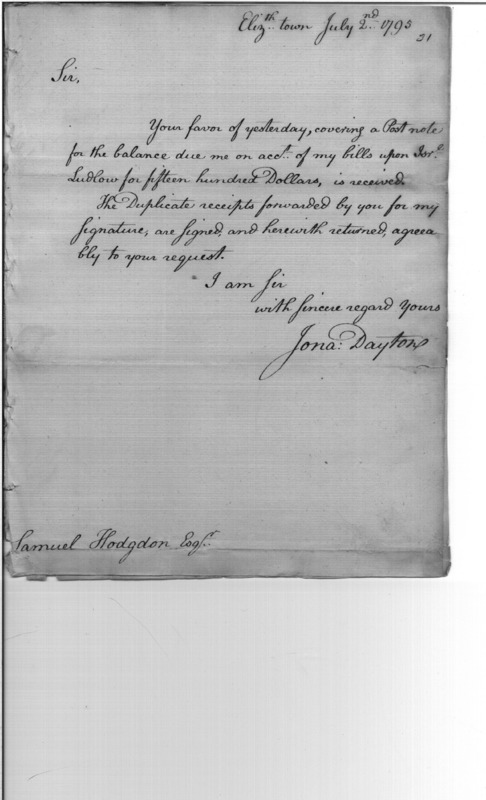 Elizth. town July 2nd. 1795
21
Sir,
Your favor of yesterday, covering a Post note
for the balance due me on acct. of my bills upon Isrl.
Ludlow for fifteen hundred Dollars, is received.
The Duplicate receipts forwarded by you for my
signature, are signed, and herewith returned, agreea
bly to your request.
I am Sir
with sincere regard Yours
Jona: Dayton
Samuel Hodgdon Esqr.